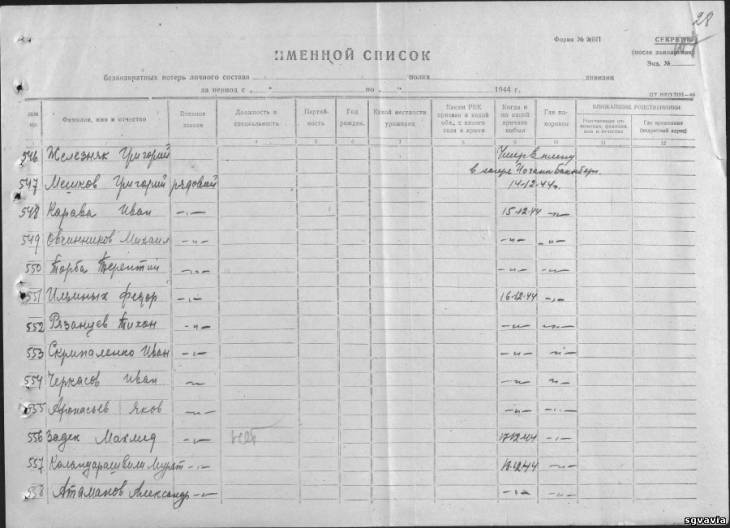 28
Форма № 2БП
СЕКРЕТНО
(после заполнения)
Экз. №
ИМЕННОЙ СПИСОК
безвозвратных потерь личного состава полка дивизии
за период с " " по " " 1944 г.
Фамилия, имя и отчество
Военное звание
Должность и специальность
Партийность
Год рожден.
Какой местности уроженец
Каким РВК призван и какой обл., с какого села и края
Когда и по какой причине выбыл
Где похоронен
БЛИЖАЙШИЕ РОДСТВЕННИКИ
Родственные отношения, фамилия, имя и отчество
Где проживают (подробный адрес)
546 Железняк Григорий Умер в плену
547 Мешков Григорий рядовой в лагере
14-12-44г.
548 Карава Иван -"- 15-12-44 -"-
549 Овчинников Михаил -"- -"- -"-
550 Торба Терентий -"- -"- -"-
551 Ильиных Федор -"- 16-12-44 -"-
552 Рязанцев Тихон -"- -"- -"-
553 Скрипаленко Иван -"- -"- -"-
554 Черкасов Иван -"- -"- -"-
555 Афонасьев Яков -"- -"- -"-
556 Задек Махмед -"- 17-12-44 -"-
557 Каландарашвили Мурат -"- 18-12-44 -"-
558 Атаманов Александр -"- -"- -"-
sgvavia